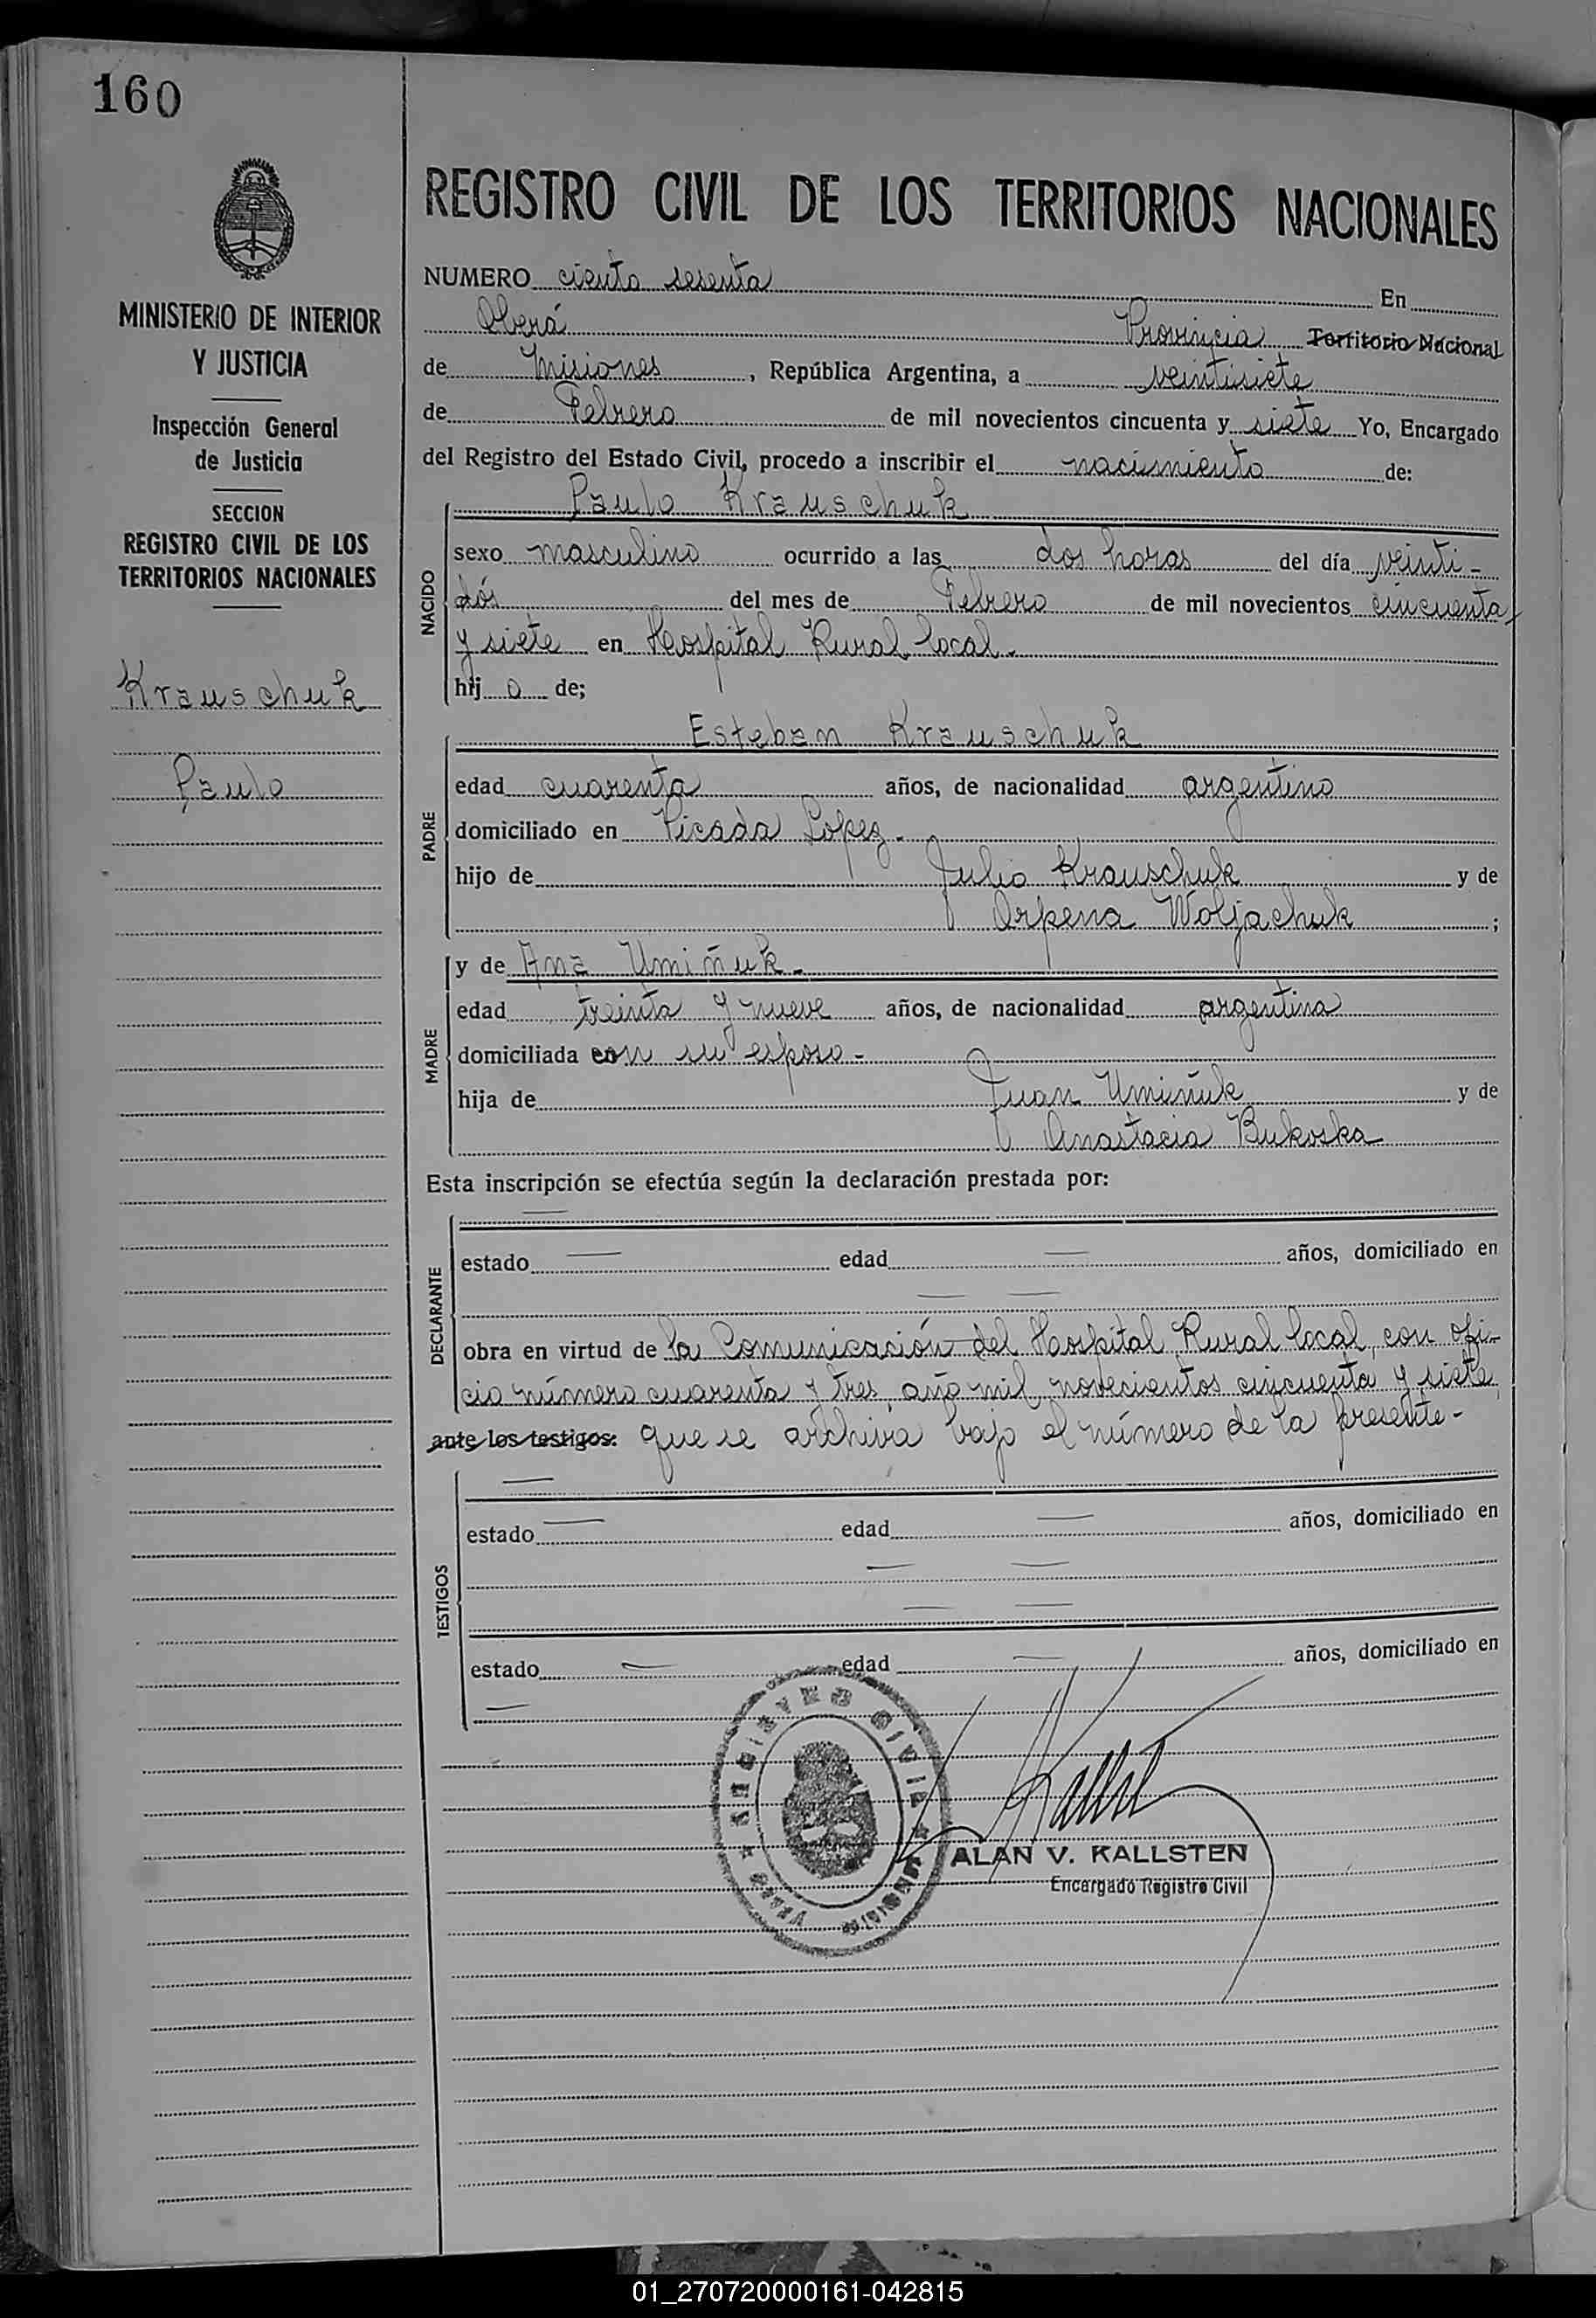 160
MINISTERIO DE INTERIOR
Y JUSTICIA
Inspección General
de Justicia
SECCION
REGISTRO CIVIL DE LOS
TERRITORIOS NACIONALES
Krauschuk
Paulo
REGISTRO CIVIL DE LOS TERRITORIOS NACIONALES
NUMERO ciento sesenta En
Oberá Provincia Territorio Nacional
de Misiones, República Argentina, a veintisiete
de Febrero de mil novecientos cincuenta y siete Yo, Encargado
del Registro del Estado Civil, procedo a inscribir el nacimiento de:
NACIDO
Paulo Krauschuk
sexo masculino ocurrido a las dos horas del día veinti-
dós del mes de Febrero de mil novecientos cincuenta
y siete en Hospital Rural local.
hij o de;
PADRE
Esteban Krauschuk
edad cuarenta años, de nacionalidad argentino
domiciliado en Picada López.
hijo de Julio Krauschuk y de
Orpena Woljachuk ;
MADRE
y de Ana Umiñuk.
edad treinta y nueve años, de nacionalidad argentina
domiciliada con su esposo-
hija de Juan Umiñuk y de
Anastacia Bukoska
Esta inscripción se efectúa según la declaración prestada por:
DECLARANTE
estado edad años, domiciliado en
obra en virtud de la Comunicación del Hospital Rural local, con ofi-
cio número cuarenta y tres, año mil novecientos cincuenta y siete
ante los testigos: que se archiva bajo el número de la presente-
TESTIGOS
estado edad años, domiciliado en
estado edad años, domiciliado en
REGISTRO CIVIL
OBERA MISIONES
ALAN V. KALLSTEN
Encargado Registro Civil
01_270720000161-042815